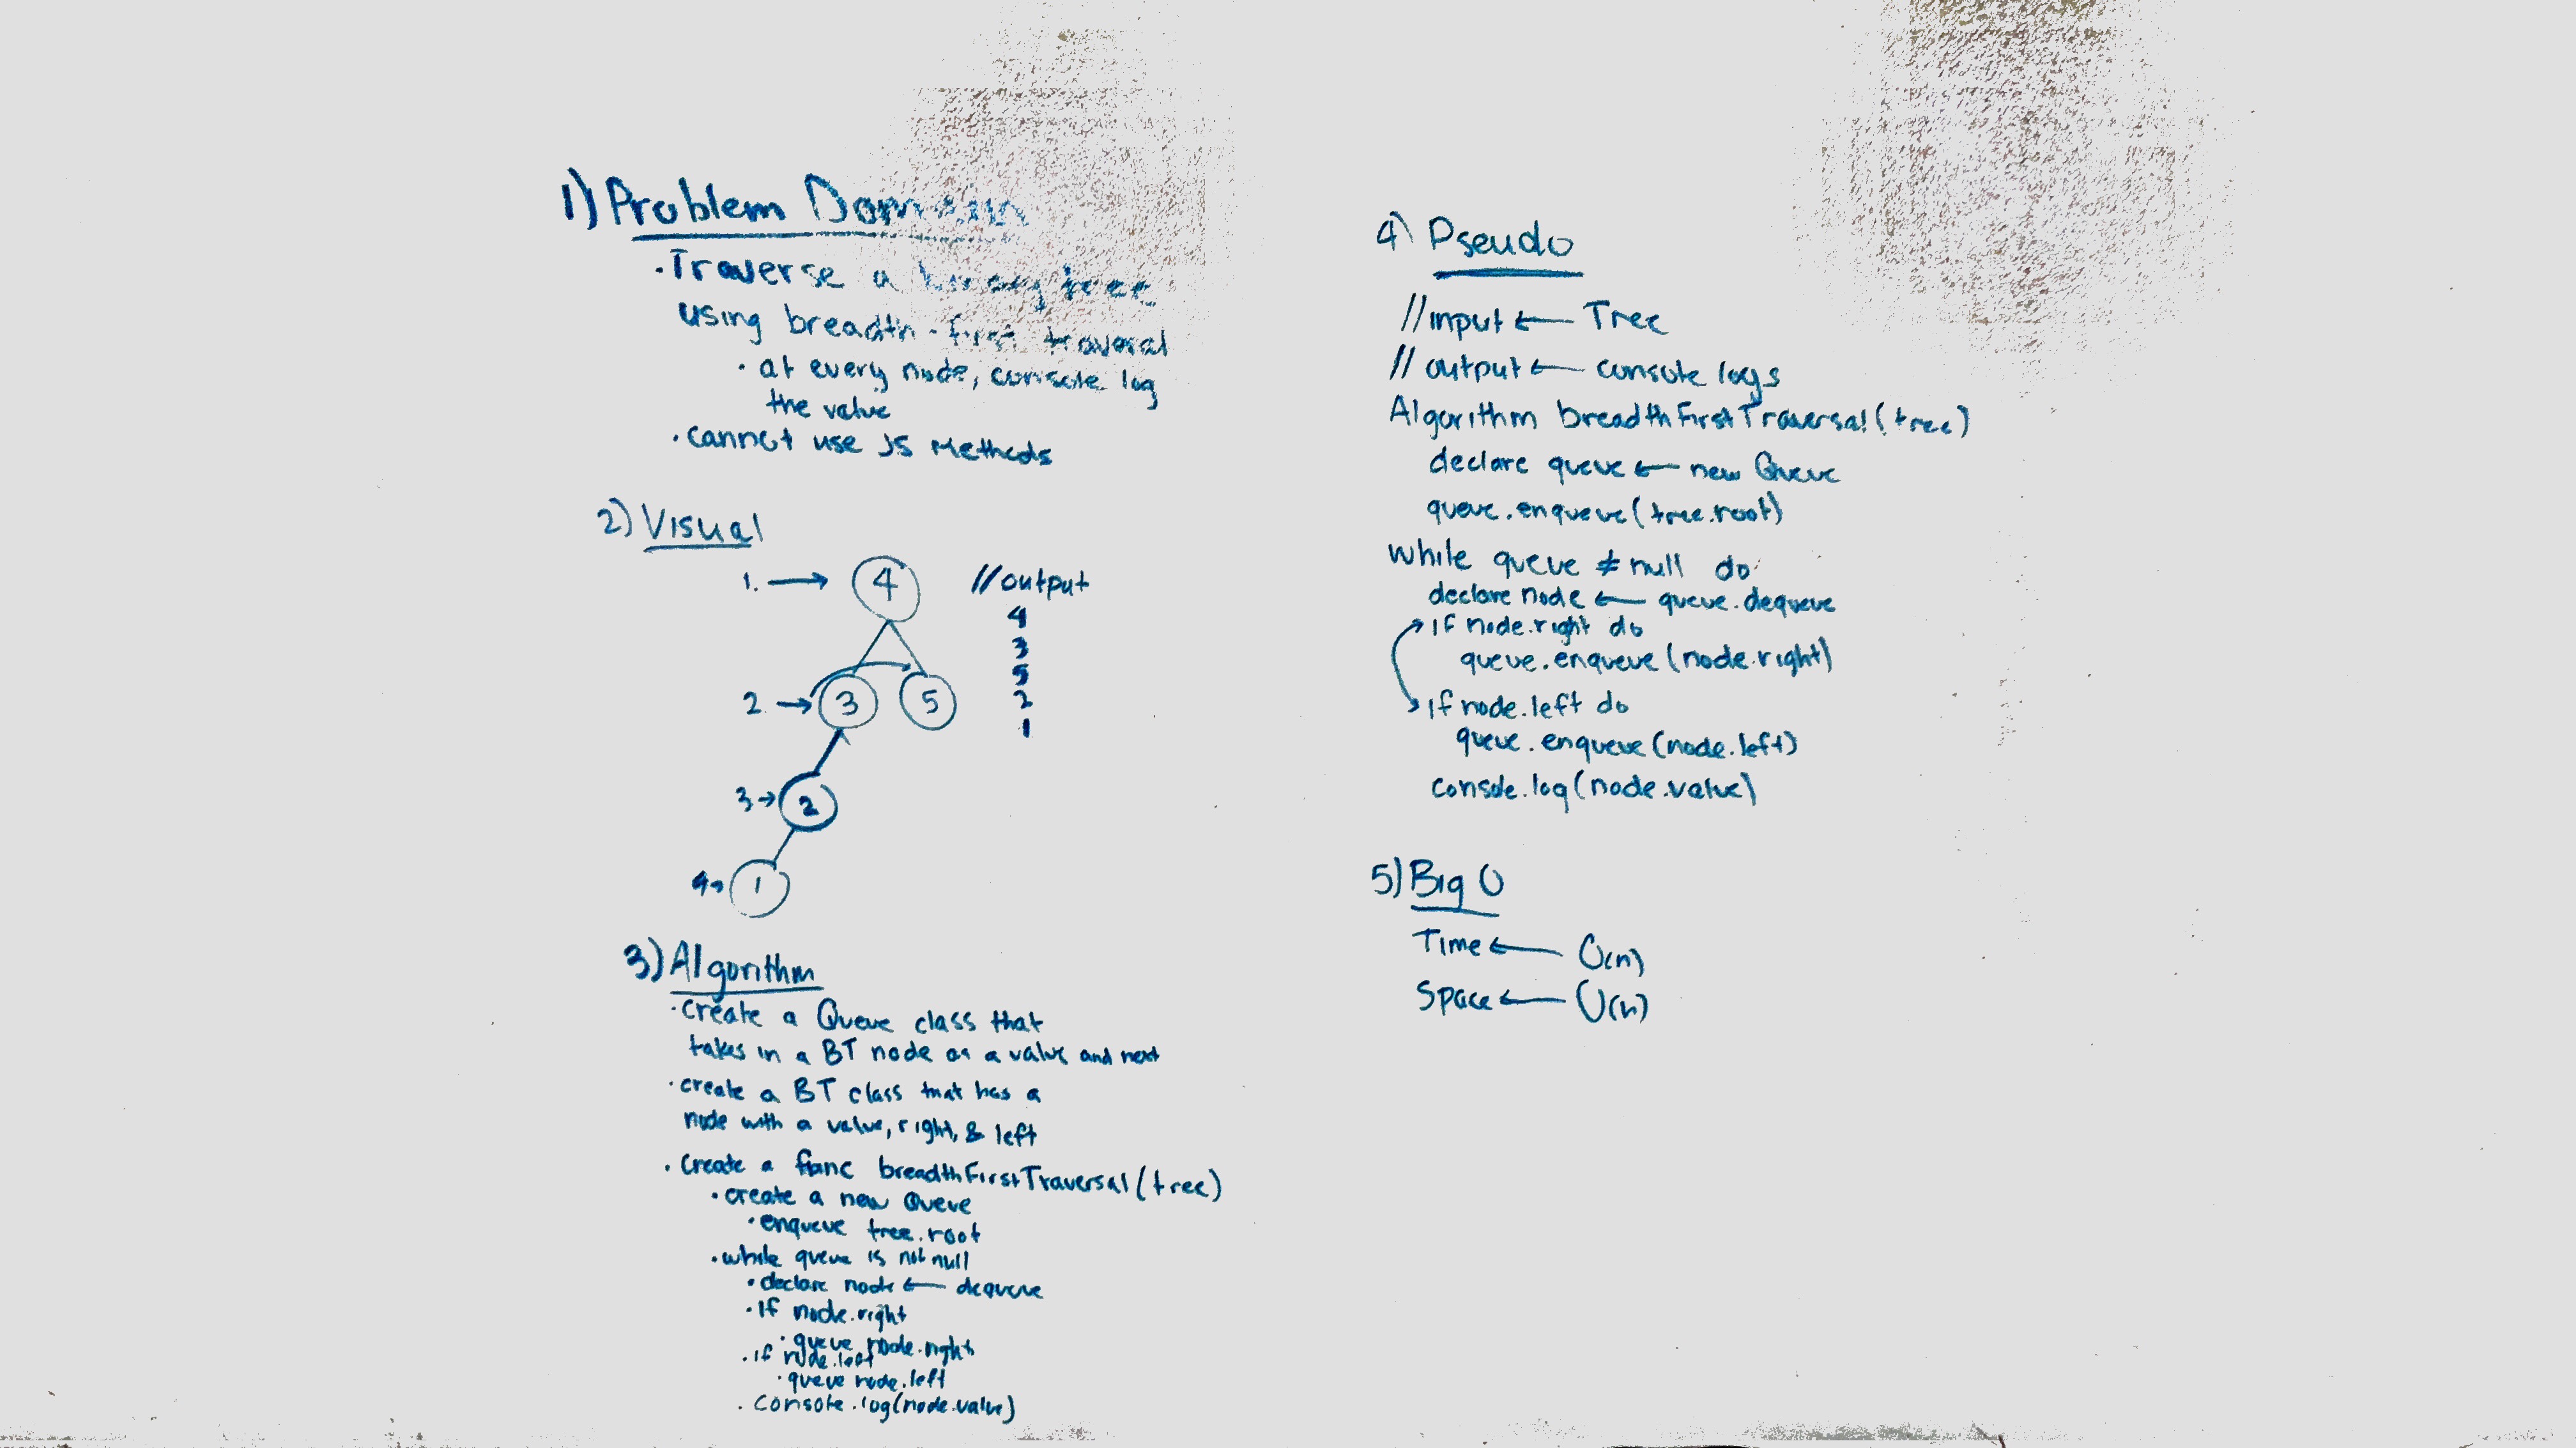 1) Problem Domain
· Traverse a binary tree
using breadth-first traveral
· at every node, console log
the value
· cannot use JS Methods
2) Visual
1. → 4
2. → 3 5
3 → 2
4 → 1
//output
4
3
5
2
1
3) Algorithm
· create a Queue class that
takes in a BT node as a value and next
· create a BT class that has a
node with a value, right, & left
· create a func breadthFirstTraversal(tree)
· create a new Queue
· enqueue tree.root
· while queue is not null
· declare node ← dequeue
· If node.right
· queue node.right
· if node.left
· queue node.left
· console.log(node.value)
4) Pseudo
//input ← Tree
//output ← console logs
Algorithm breadthFirstTraversal(tree)
declare queue ← new Queue
queue.enqueue(tree.root)
while queue ≠ null do
declare node ← queue.dequeue
if node.right do
queue.enqueue(node.right)
if node.left do
queue.enqueue(node.left)
console.log(node.value)
5) Big O
Time ← O(n)
Space ← O(n)